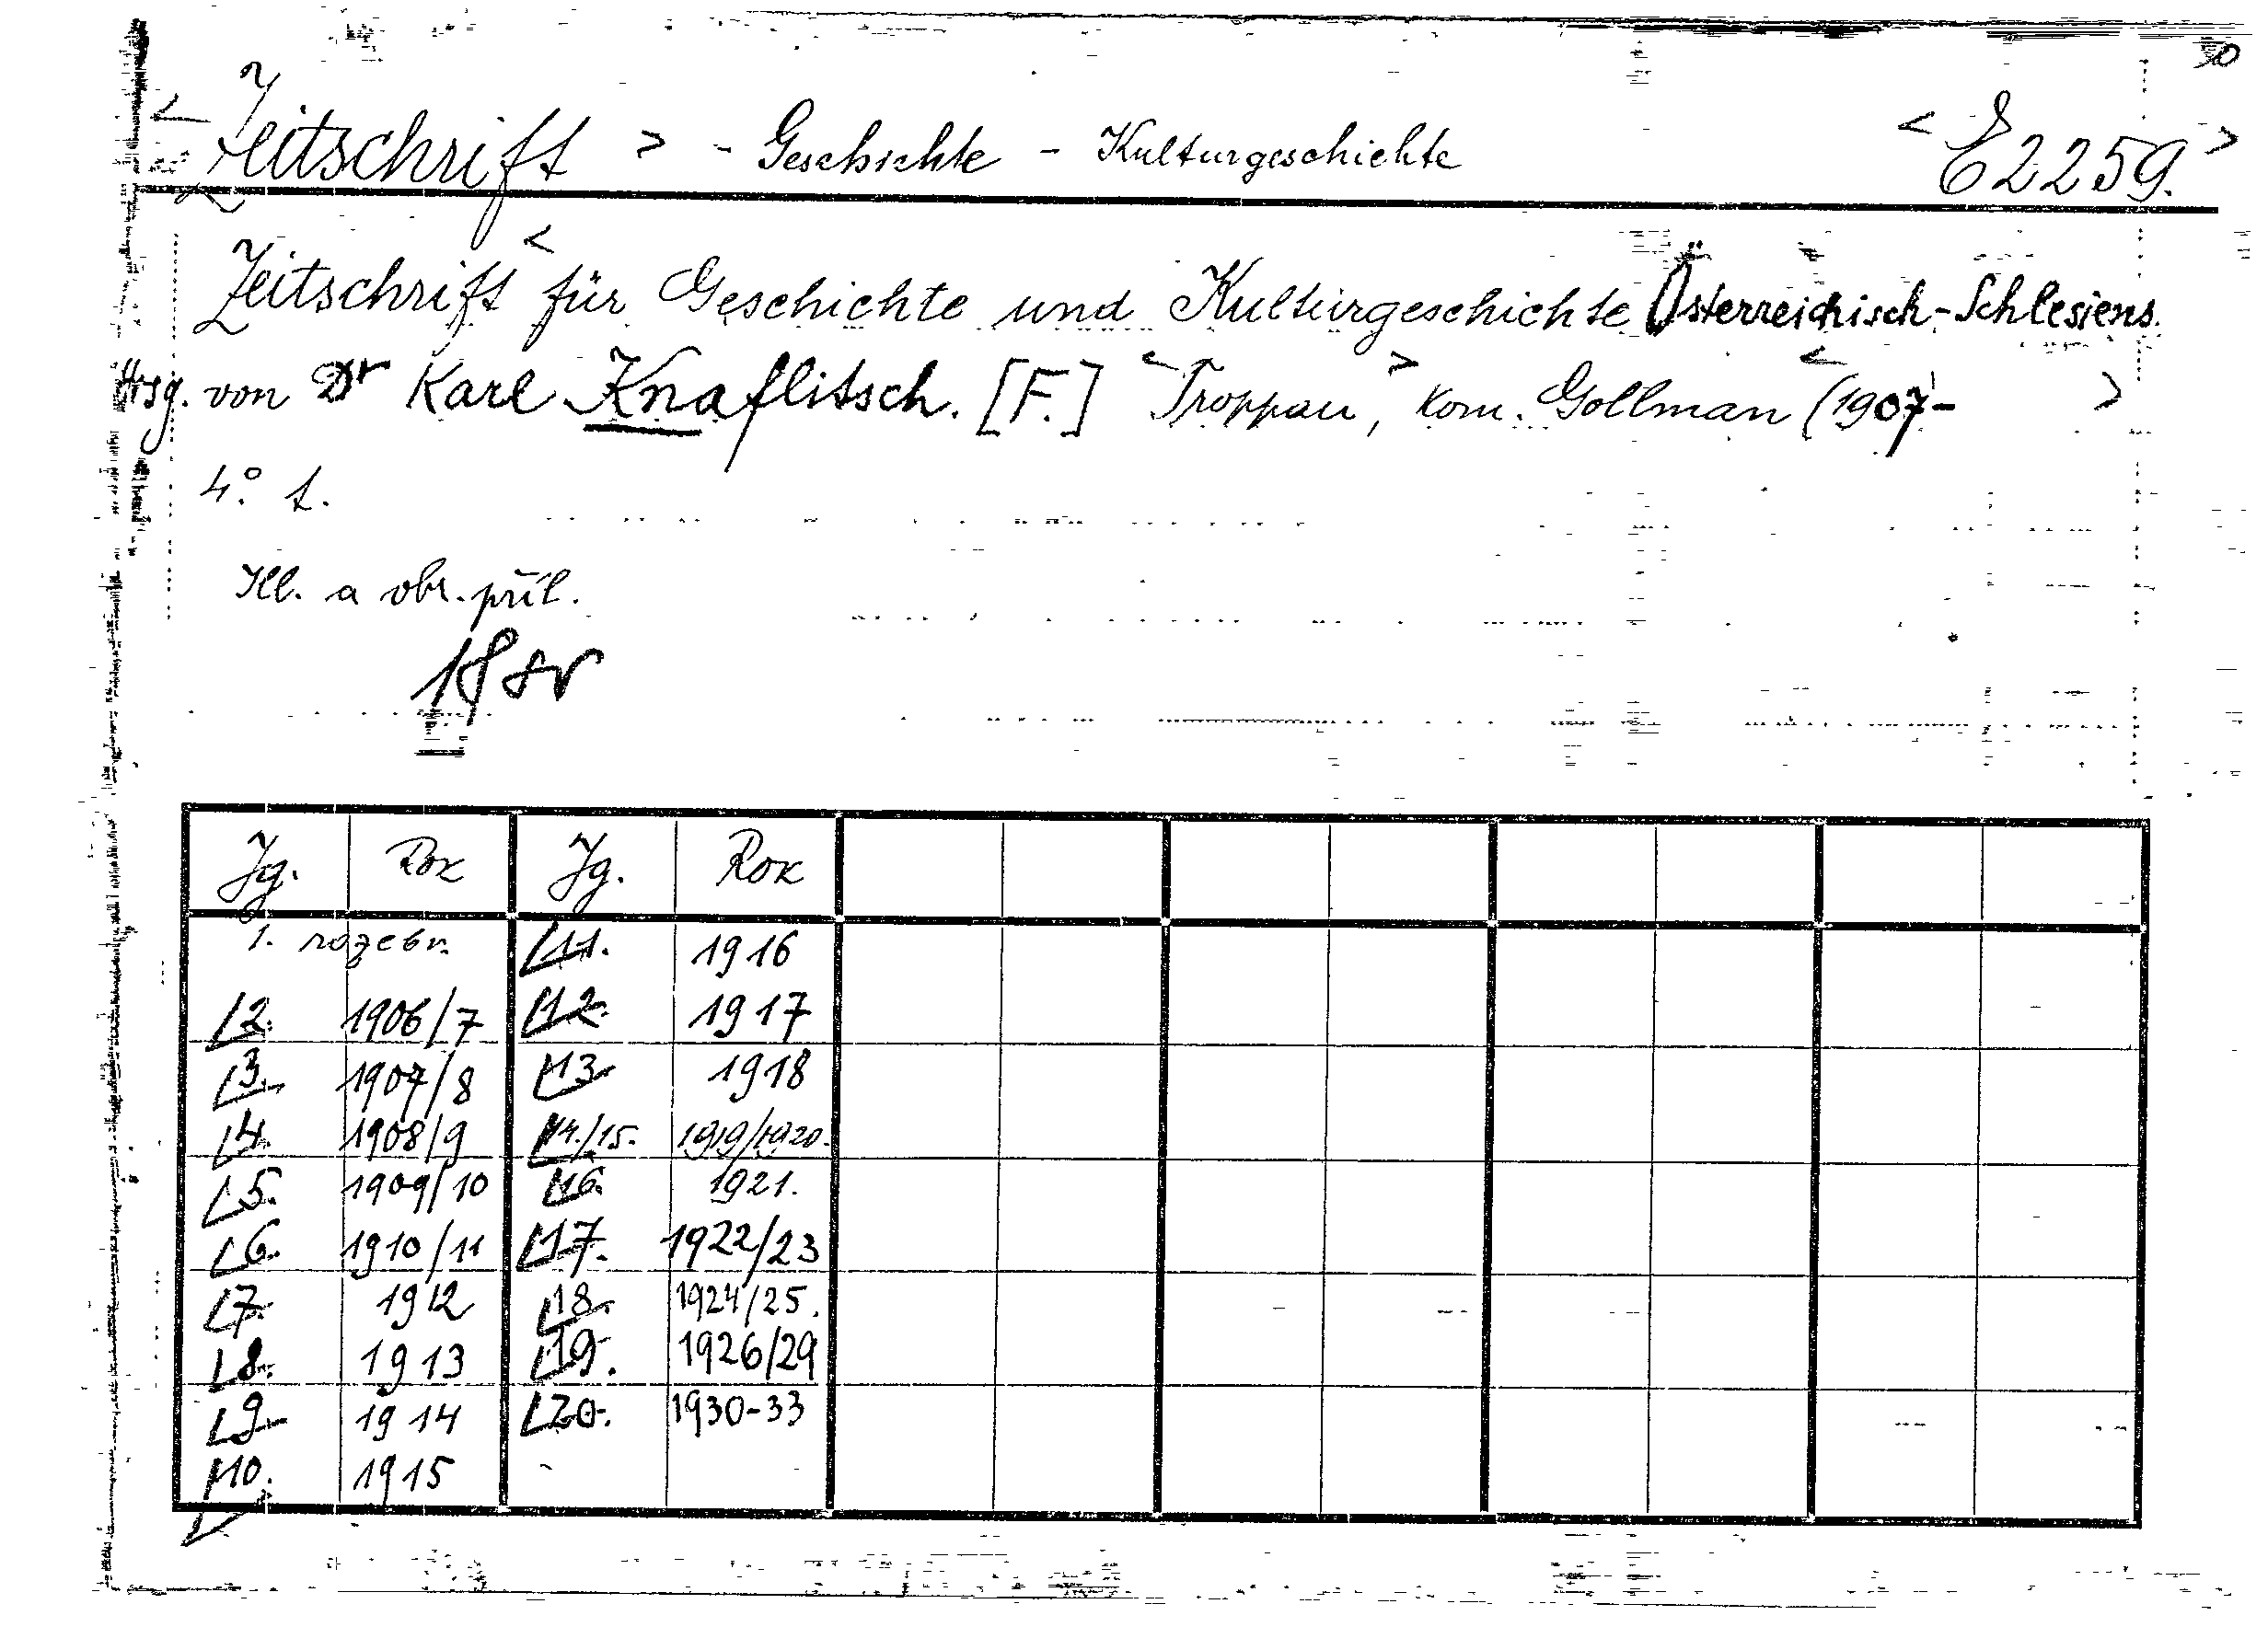 30
< Zeitschrift > - Geschichte - Kulturgeschichte < E 2259. >
Zeitschrift < für Geschichte und Kulturgeschichte Österreichisch-Schlesiens.
Hrsg. von Dr Karl Knaflitsch. [F.] < Troppau, > Kom. Gollman < (1907- >
4.° 
Ill. a obr. příl.
sv
Jg. Rok Jg. Rok
1. rozebr. 11. 1916
2. 1906/7 12. 1917
3. 1907/8 13. 1918
4. 1908/9 14./15. 1919/1920.
5. 1909/10 16. 1921.
6. 1910/11 17. 1922/23
7. 1912 18. 1924/25.
8. 1913 19. 1926/29
9. 1914 20. 1930-33
10. 1915